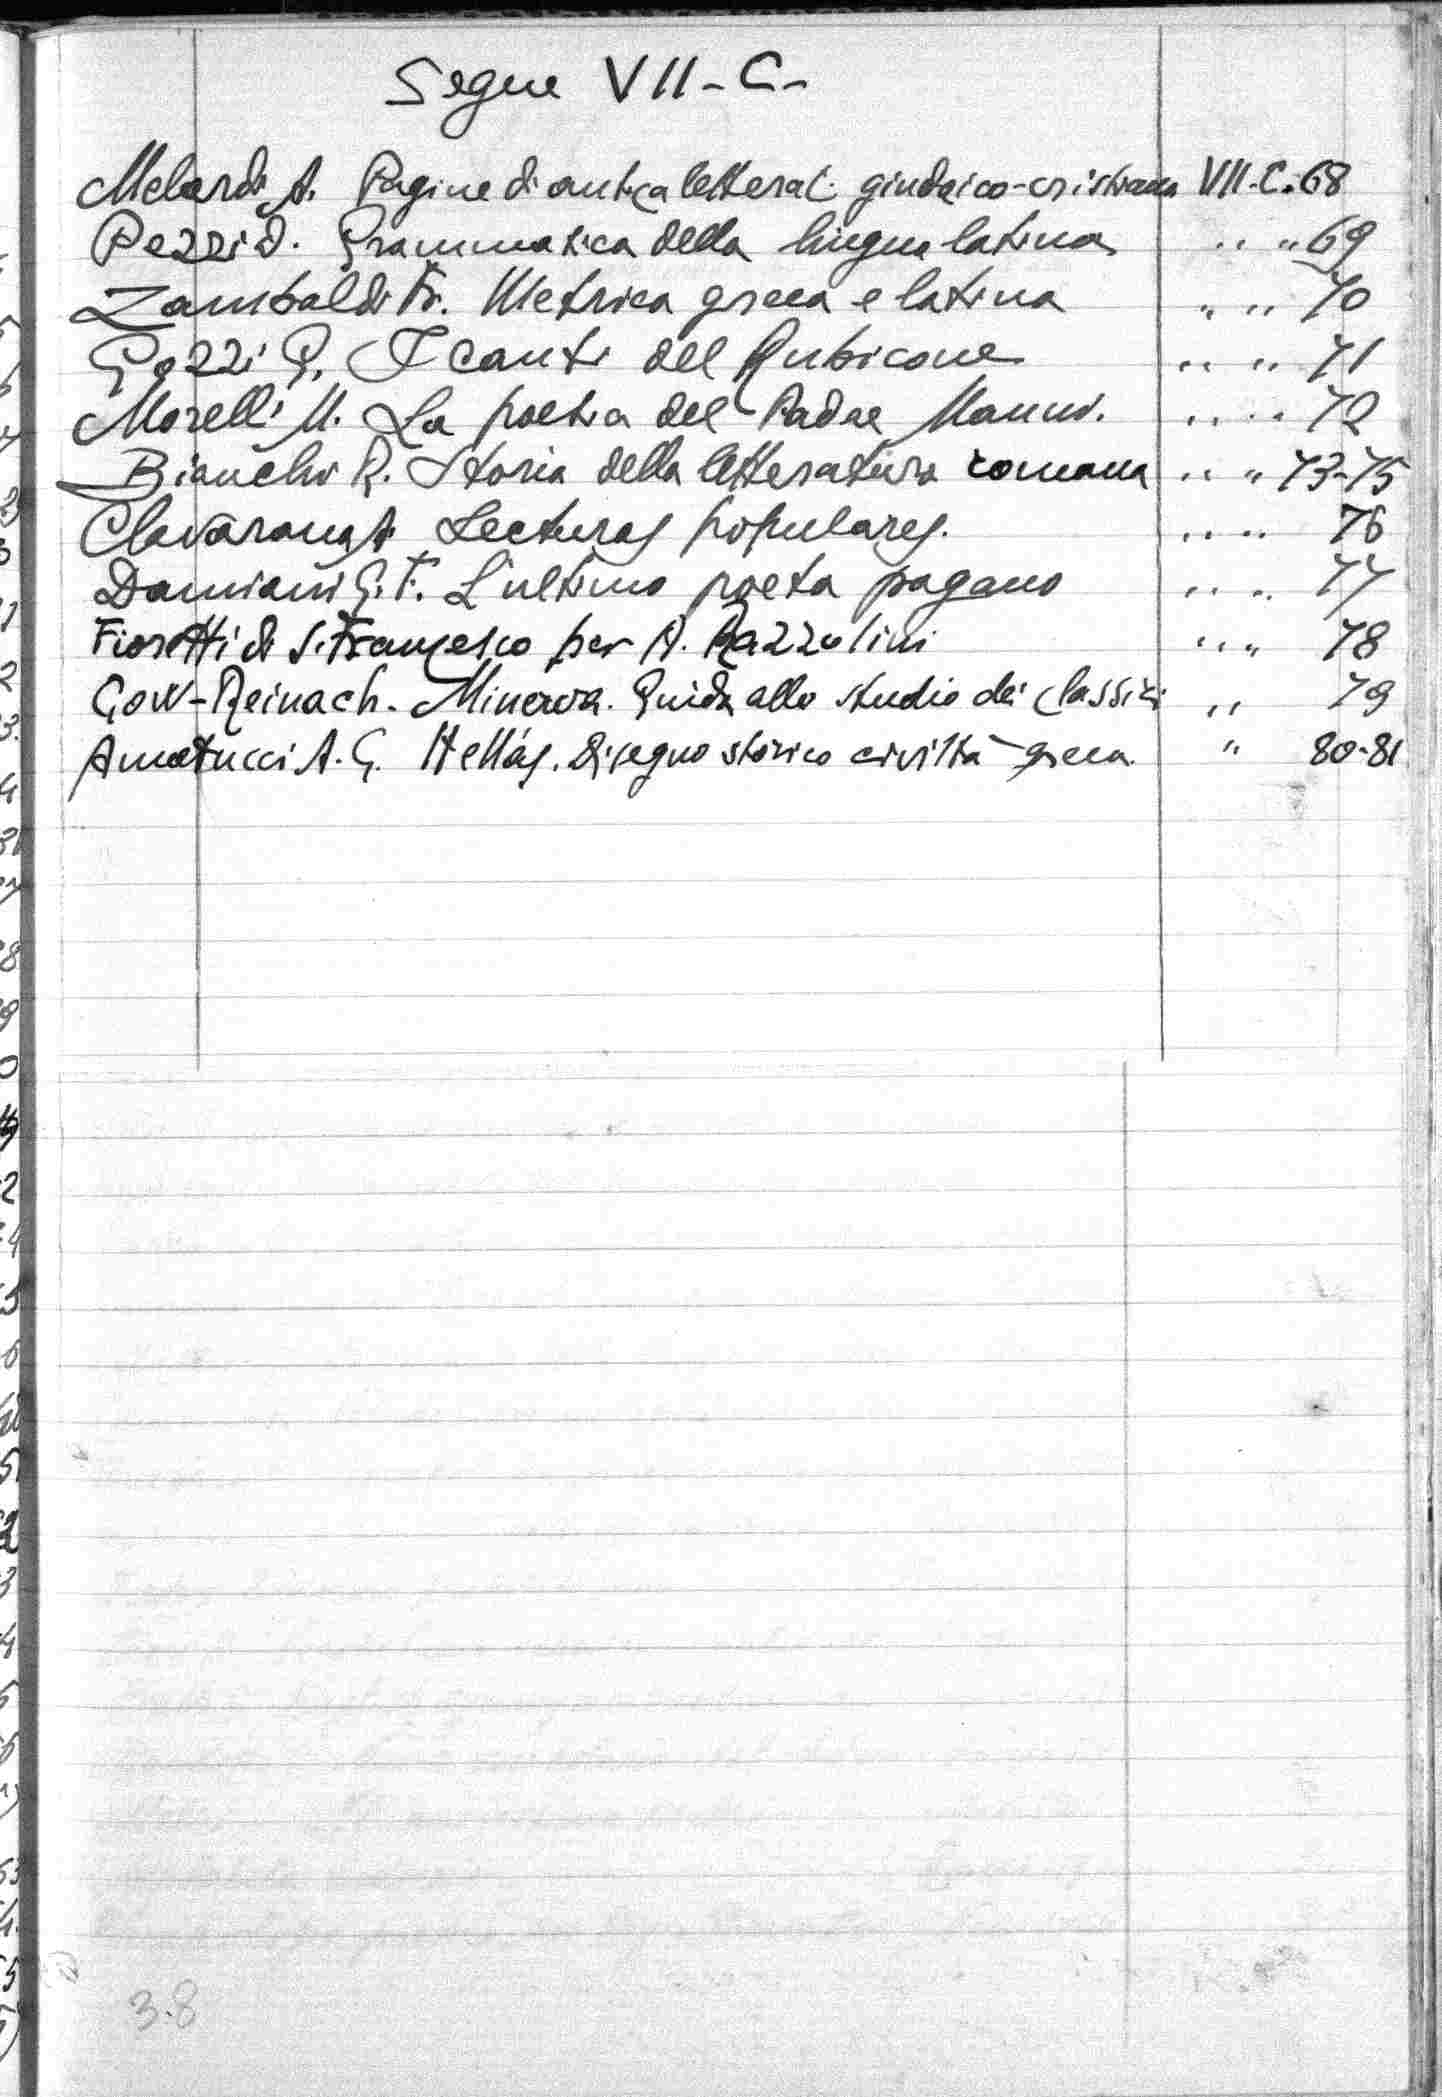 Segue VII-C-
Melardi A. Pagine di antica letterat. giudaico-cristiana VII-C. 68
Pezzi D. Grammatica della lingua latina " " 69
Zambaldi Fr. Metrica greca e latina " " 70
Gozzi G. I canti del Rubicone " " 71
Morelli M. La poetica del Padre Mauri. " " 72
Bianchi R. Storia della letteratura romana " " 73-75
Clavarana A. Lecturas populares. " " 76
Damiani G. F. L'ultimo poeta pagano " " 77
Fioretti di S. Francesco per A. Razzolini " " 78
Gow-Reinach. Minerva. Guida allo studio dei classici " 79
Amatucci A. G. Hellás. Disegno storico civiltà greca. " 80-81
3.8